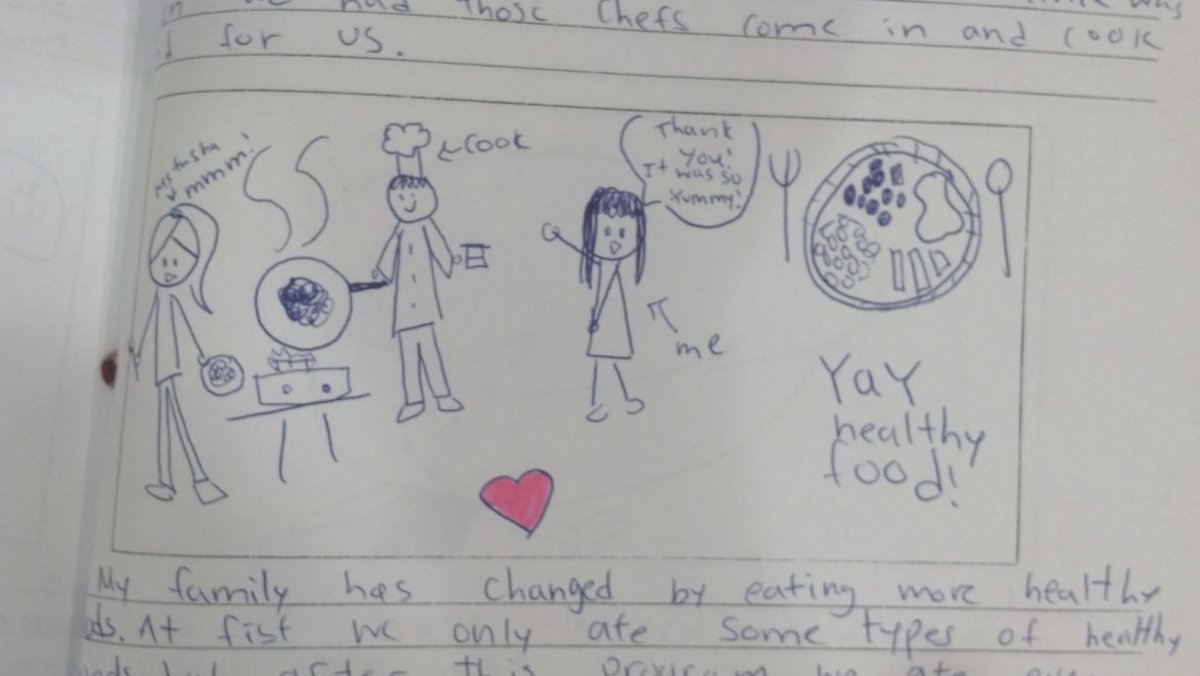 had those Chefs come in and cook
for US.
Ms tasha
mmm!
cook
Thank
you!
It was so
yummy!
me
Yay
healthy
food!
My family has changed by eating more healthy
ds. At fist we only ate some types of healthy
after this program we ate